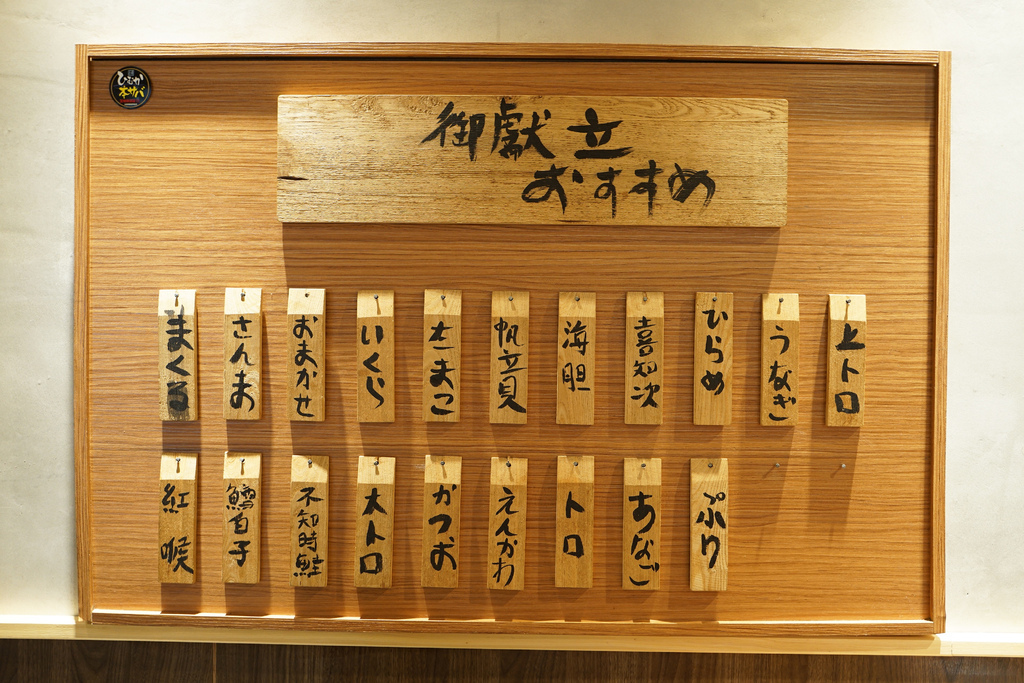 ひむか
本サバ
御献立
おすすめ
まくる
さんま
おまかせ
いくら
たまこ
帆立貝
海胆
喜知次
ひらめ
うなぎ
上トロ
紅喉
鱈白子
不知時鮭
大トロ
かつお
えんかわ
トロ
あなご
ぷり